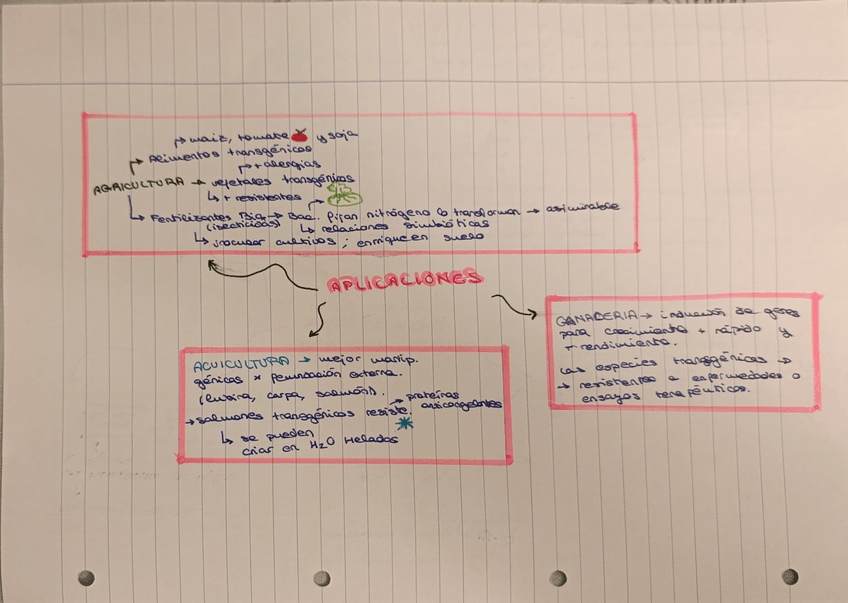 maiz, tomate y soja
Alimentos transgénicos
+ alergias
AGRICULTURA → vegetales transgénicos
+ resistentes
Fertilizantes Bio → Bac. Fijan nitrógeno lo transforman → asimilable
(insecticidas) relaciones simbióticas
inocular cultivos ; enriquecen suelo
APLICACIONES
GANADERIA → inducción de genes
para crecimiento + rápido y
+ rendimiento.
Las especies transgénicas →
→ resistentes a enfermedades o
ensayos terapéuticos.
ACUICULTURA → mejor manip.
génicas x fecundación externa.
(lubina, carpa, salmón).
→ salmones transgénicos resiste. proteínas
anticongelantes
se pueden
criar en H₂O Helados